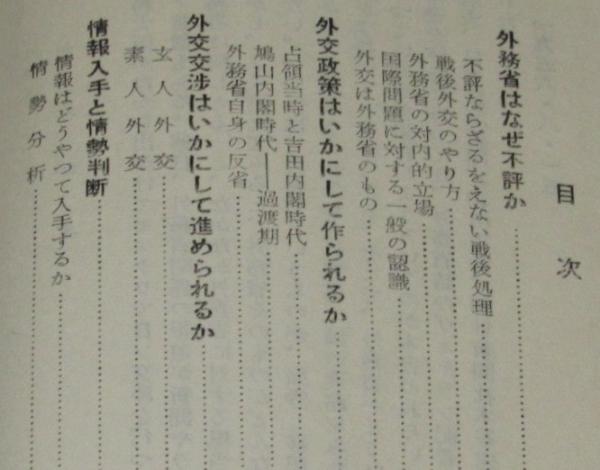 目次
外務省はなぜ不評か
不評ならざるをえない戦後処理
戦後外交のやり方
外務省の対内的立場
国際問題に対する一般の認識
外交は外務省のもの
外交政策はいかにして作られるか
占領当時と吉田内閣時代
鳩山内閣時代――過渡期
外務省自身の反省
外交交渉はいかにして進められるか
玄人外交
素人外交
情報入手と情勢判断
情報はどうやつて入手するか
情勢分析